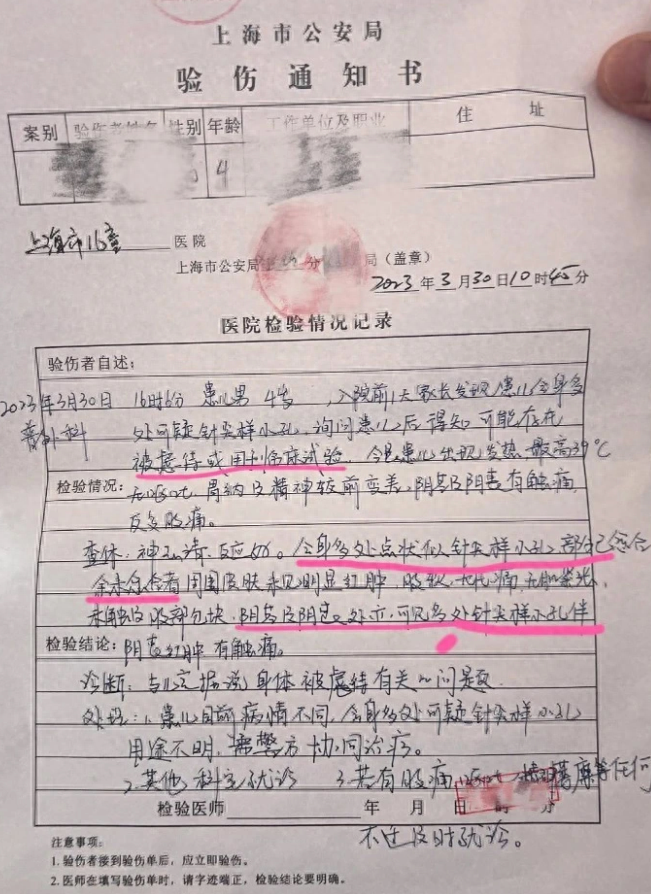 上海市公安局
验伤通知书
案别 验伤者姓名 性别 年龄 工作单位及职业 住址
4
上海市 医院
上海市公安局 分 局（盖章）
2023年3月30日10时45分
医院检验情况记录
验伤者自述：
2023年3月30日 16时6分 患儿男 4岁 ，入院前1天家长发现患儿全身多
普外科 处可疑针尖样小孔，询问患儿后得知可能存在
被虐待或用于临床试验。今患儿出现发热 最高39℃
检验情况： 无呕吐，胃纳及精神较前变差，阴茎及阴囊有触痛，
反复腹痛。
查体：神志清，反应好。全身多处点状似针尖样小孔，部分已愈合
余未愈合者 周围皮肤未见明显红肿 腹软，无压痛，无肌紧张，
未触及腹部包块，阴茎及阴囊 可见多处针尖样小孔伴
检验结论： 阴茎红肿 有触痛。
诊断：与 身体被虐待有关的问题
处理：1. 患儿目前病情不同，全身多处可疑针尖样小孔
用途不明，需警方协同治疗。
2. 其他科室就诊 3. 若有腹痛 等任何
检验医师 年 月 日 时 分
不适及时就诊。
注意事项：
1. 验伤者接到验伤单后，应立即验伤。
2. 医师在填写验伤单时，请字迹端正，检验结论要明确。